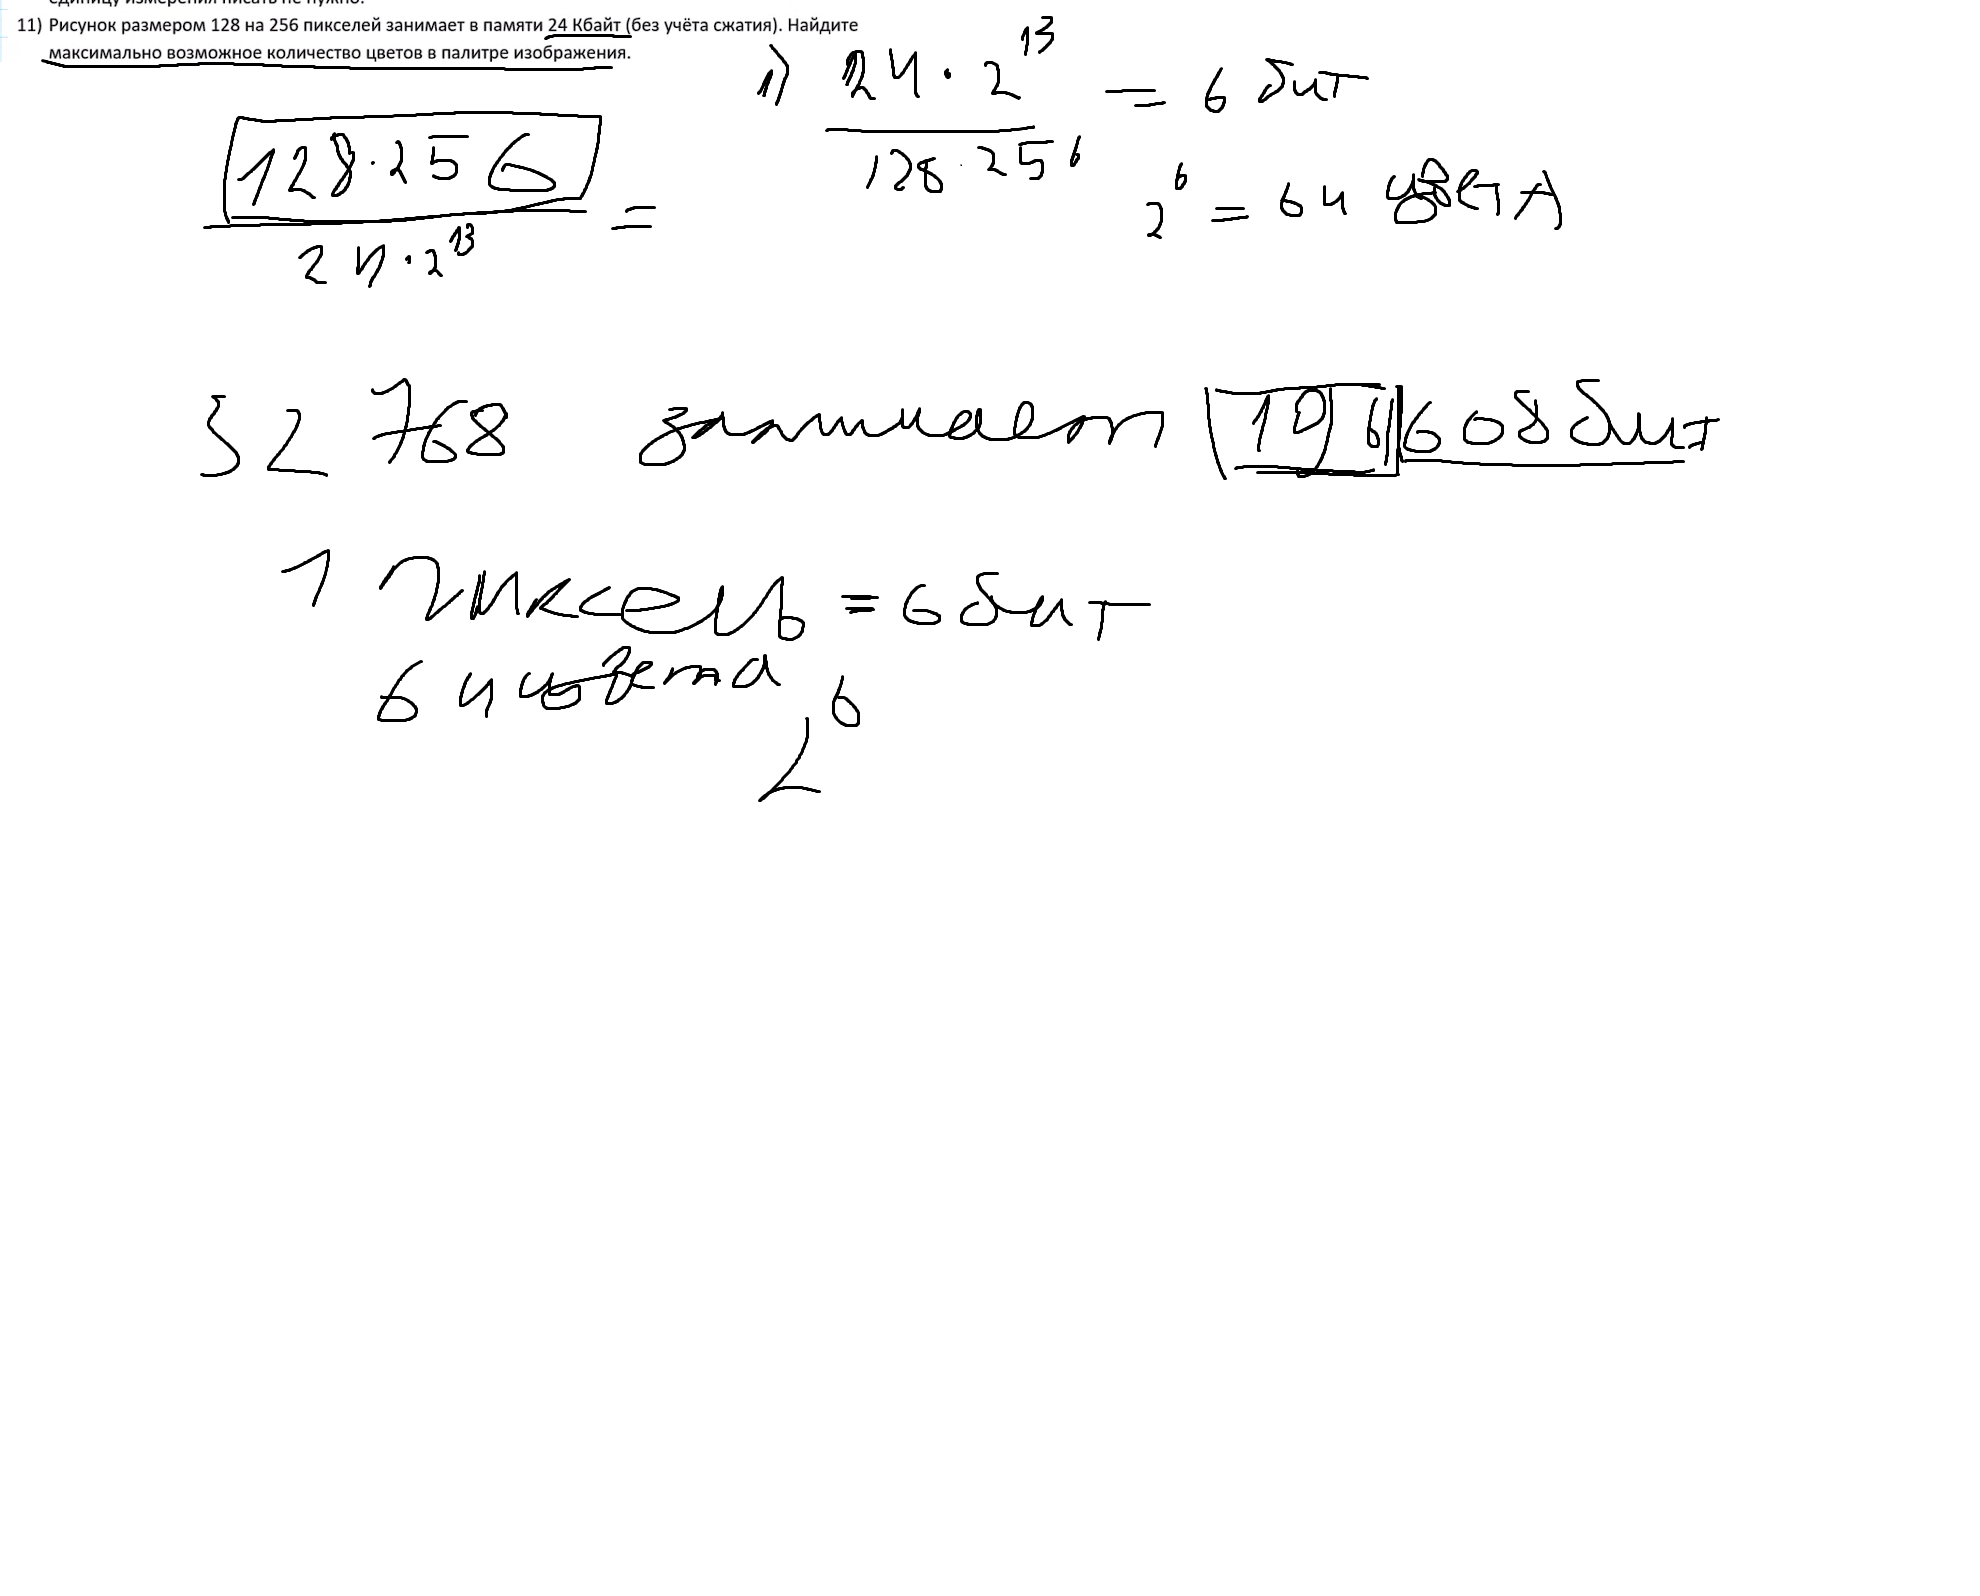 единицу измерения писать не нужно.
11) Рисунок размером 128 на 256 пикселей занимает в памяти 24 Кбайт (без учёта сжатия). Найдите
максимально возможное количество цветов в палитре изображения.
1) 24 · 2^13 / 128 · 256 = 6 бит
128 · 256 / 24 · 2^13 =
2^6 = 64 цвета
32 768 занимает 196 608 бит
1 пиксель = 6 бит
64 цвета
2^6